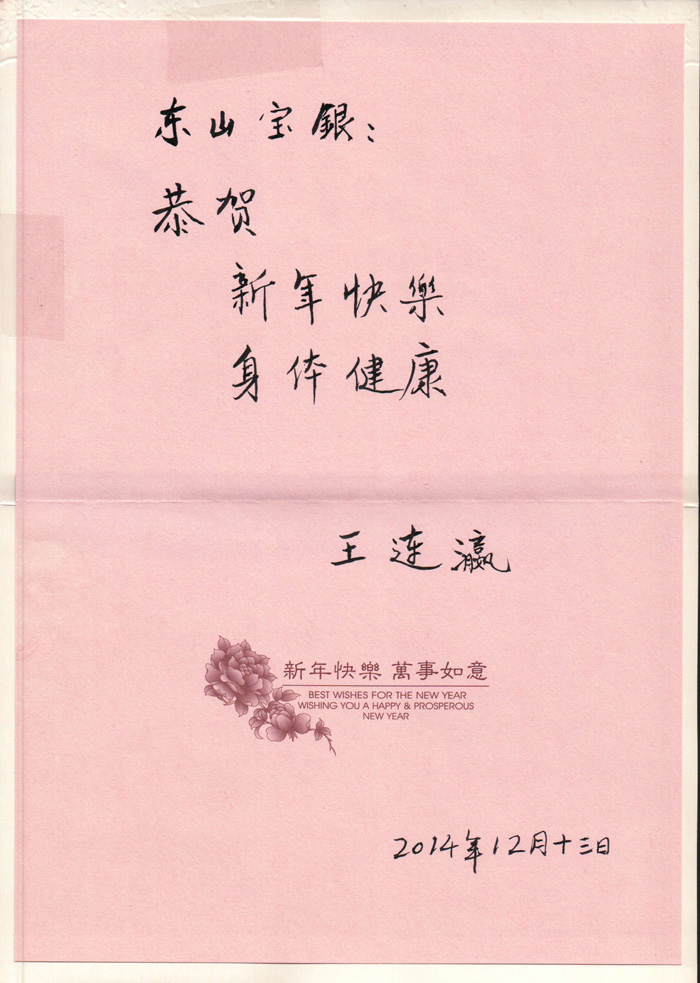 东山宝銀：
恭贺
新年快樂
身体健康
王连瀛
新年快樂 萬事如意
BEST WISHES FOR THE NEW YEAR
WISHING YOU A HAPPY & PROSPEROUS
NEW YEAR
2014年12月十三日